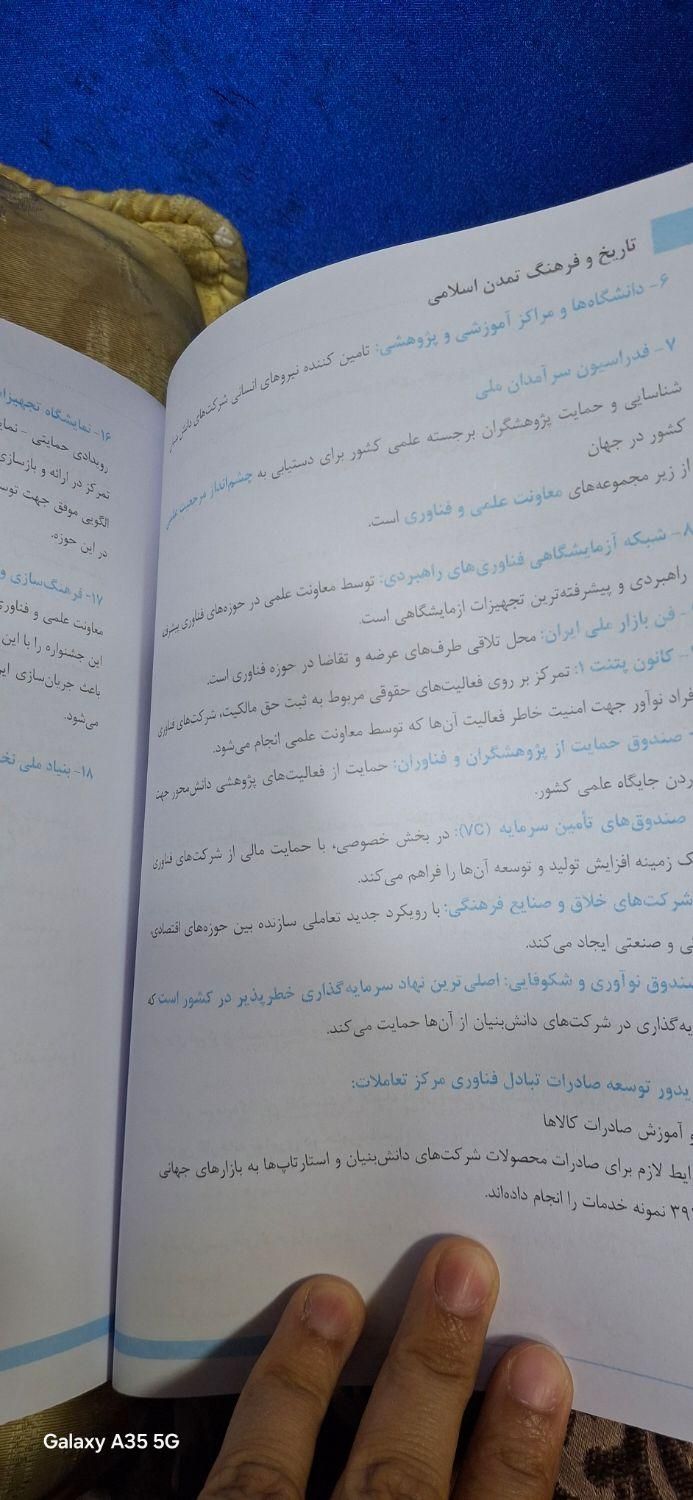 تاریخ و فرهنگ تمدن اسلامی
۶- دانشگاه‌ها و مراکز آموزشی و پژوهشی: تامین کننده نیروهای انسانی شرکت‌های دانش بنیان
۷- فدراسیون سرآمدان ملی
شناسایی و حمایت پژوهشگران برجسته علمی کشور برای دستیابی به چشم‌انداز مرجعیت علمی
کشور در جهان
از زیر مجموعه‌های معاونت علمی و فناوری است.
۸- شبکه آزمایشگاهی فناوری‌های راهبردی: توسط معاونت علمی در حوزه‌های فناوری پیشرفته
راهبردی و پیشرفته‌ترین تجهیزات ازمایشگاهی است.
- فن بازار ملی ایران: محل تلاقی طرف‌های عرضه و تقاضا در حوزه فناوری است.
- کانون پتنت ۱: تمرکز بر روی فعالیت‌های حقوقی مربوط به ثبت حق مالکیت، شرکت‌های فناوری
نوآور جهت امنیت خاطر فعالیت آن‌ها که توسط معاونت علمی انجام می‌شود.
صندوق حمایت از پژوهشگران و فناوران: حمایت از فعالیت‌های پژوهشی دانش‌محور جهت
جایگاه علمی کشور.
صندوق‌های تأمین سرمایه (VC): در بخش خصوصی، با حمایت مالی از شرکت‌های فناوری
زمینه افزایش تولید و توسعه آن‌ها را فراهم می‌کند.
شرکت‌های خلاق و صنایع فرهنگی: با رویکرد جدید تعاملی سازنده بین حوزه‌های اقتصادی،
و صنعتی ایجاد می‌کند.
نوآوری و شکوفایی: اصلی‌ترین نهاد سرمایه‌گذاری خطرپذیر در کشور است که
در شرکت‌های دانش‌بنیان از آن‌ها حمایت می‌کند.
توسعه صادرات تبادل فناوری مرکز تعاملات:
آموزش صادرات کالاها
لازم برای صادرات محصولات شرکت‌های دانش‌بنیان و استارتاپ‌ها به بازارهای جهانی
نمونه خدمات را انجام داده‌اند.
۱۶- نمایشگاه
رویدادی حمایتی -
تمرکز در ارائه و بازسازی
الگویی موفق جهت
در این حوزه.
۱۷- فرهنگ‌سازی و
معاونت علمی و فناوری
این جشنواره را با این
باعث جریان‌سازی
می‌شود.
۱۸- بنیاد ملی
Galaxy A35 5G